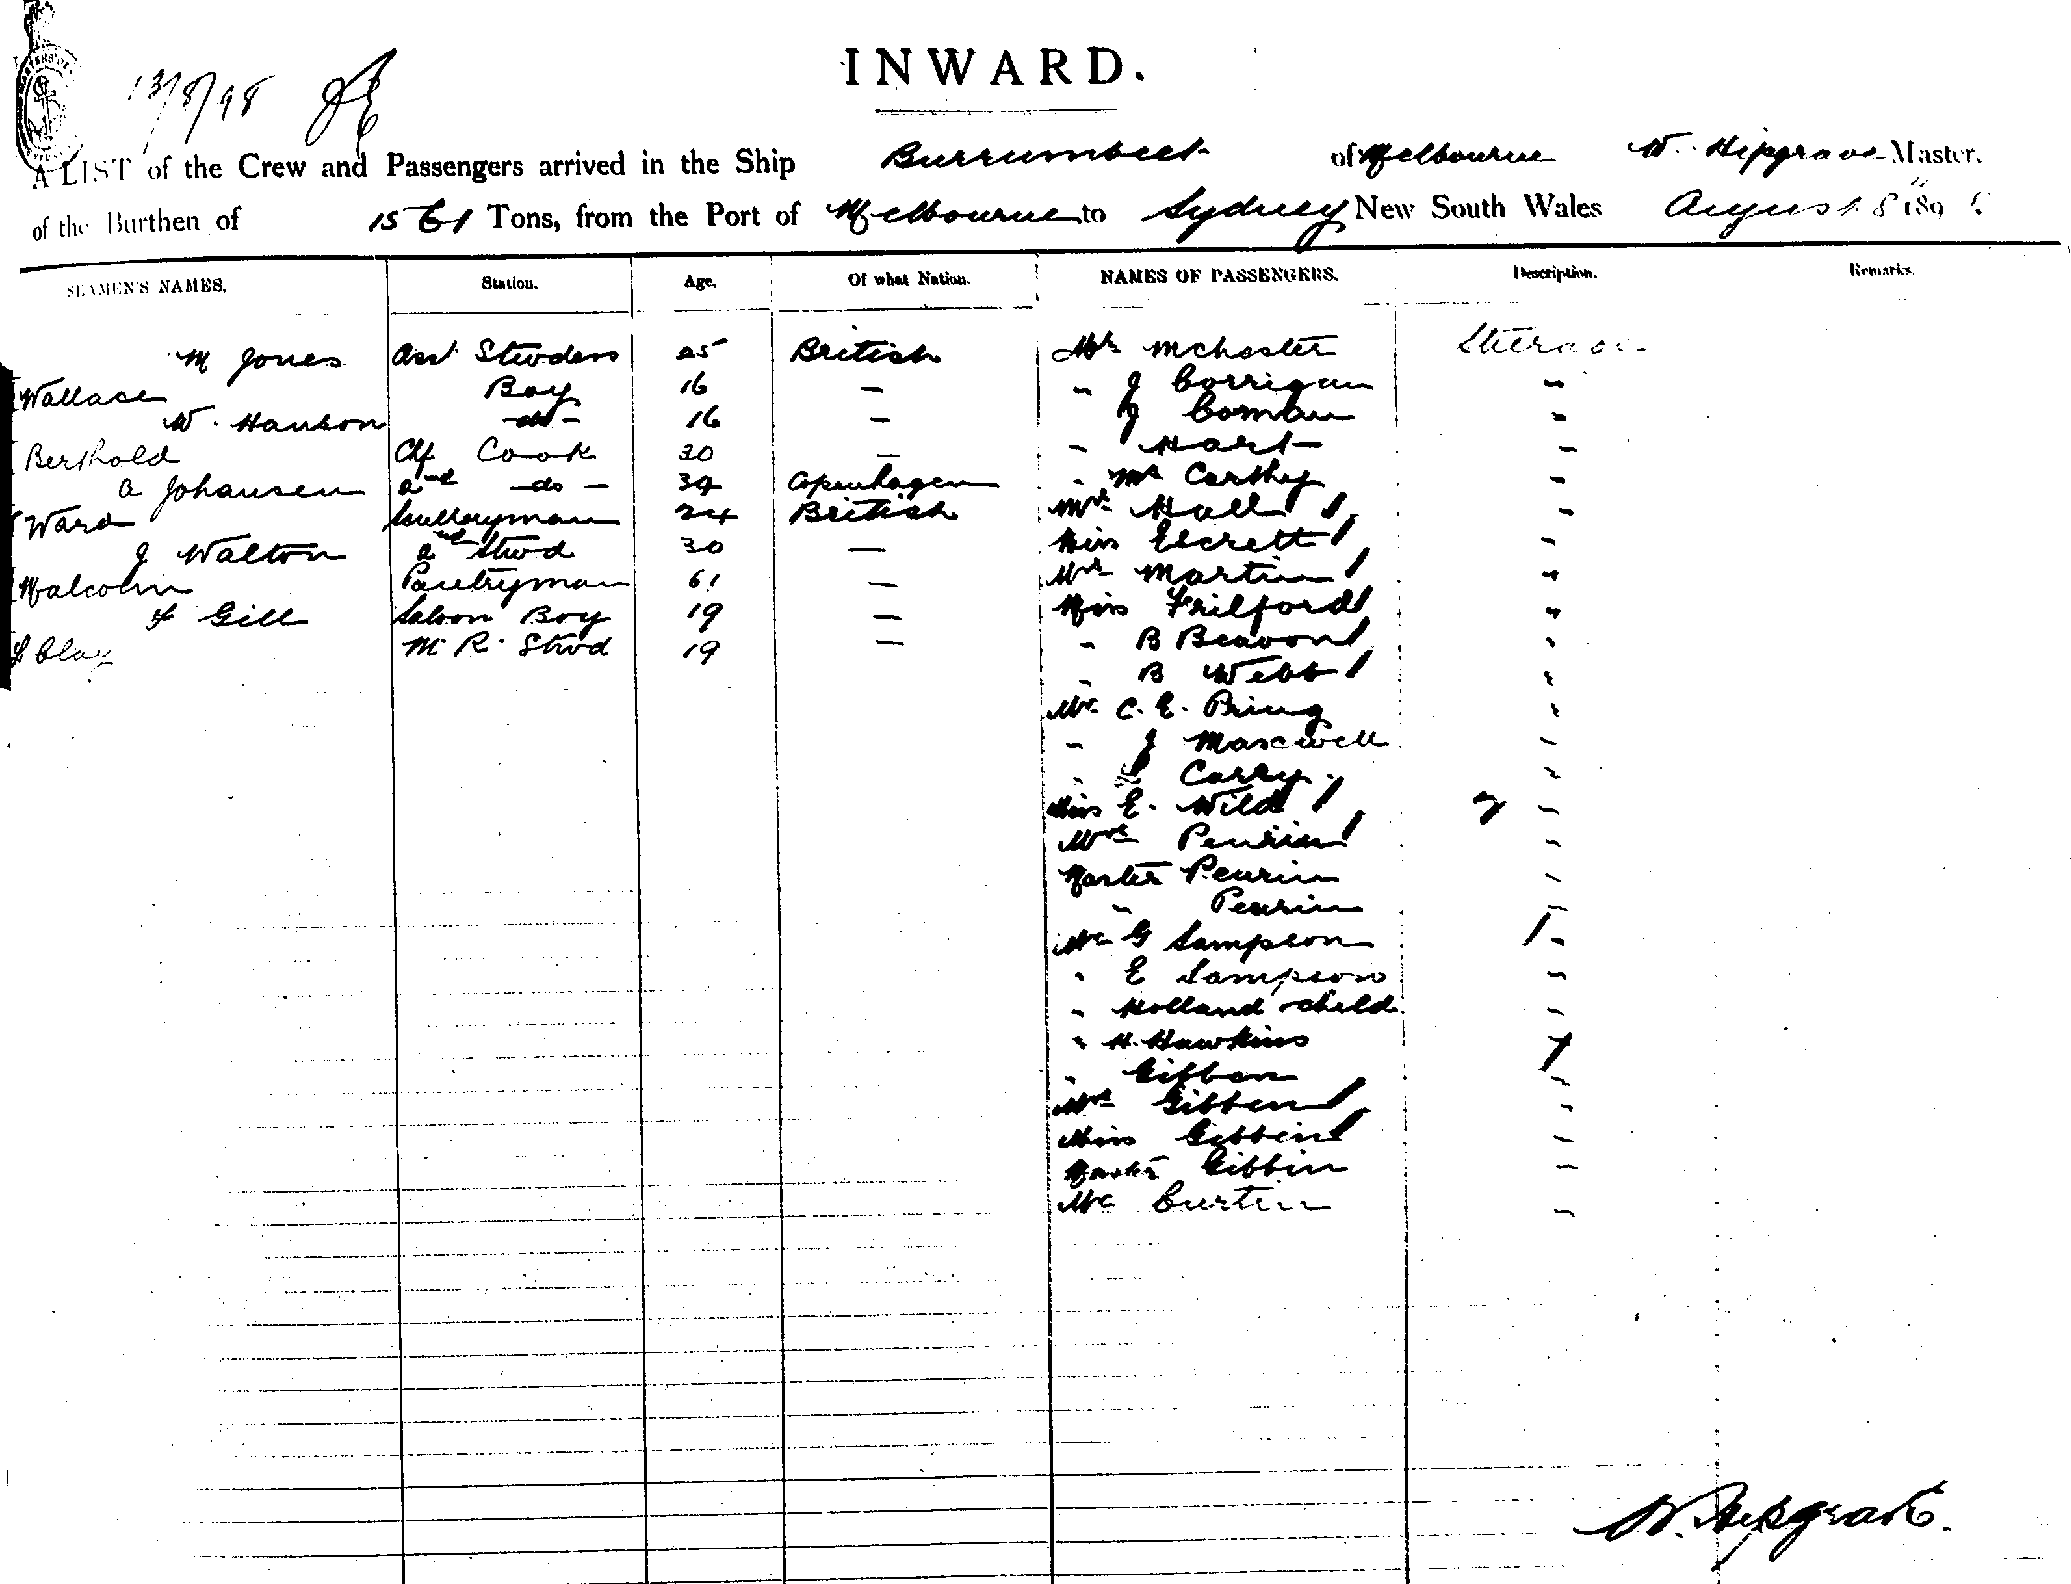 INWARD.
13/8/98
A LIST of the Crew and Passengers arrived in the Ship Burrumbeet of Melbourne W. Hipgrave Master.
of the Burthen of 1561 Tons, from the Port of Melbourne to Sydney New South Wales August 8 189
SEAMEN'S NAMES. Station. Age. Of what Nation. NAMES OF PASSENGERS. Description. Remarks.
M Jones Asst Stwdess 25 British Mr McHoster Steerage
Wallace Boy 16 — " J Corrigan "
W. Hanson -do- 16 — J Coman "
Berthold Chf Cook 30 — " Hart "
A Johansen 2nd -do- 34 Copenhagen " McCarthy "
Ward Sculleryman 24 British Mrs Hall "
J Walton 2nd Stwd 30 — Miss Everett "
Malcolm Pantryman 61 — Mrs Martin "
F Gill Saloon Boy 19 — Miss Fulford "
Clay M. R. Stwd 19 — " B Beavon "
" B Webb "
Mr C. E. Pring "
" J Maxwell "
" Carry "
Miss E. Wild "
Mrs Penrin "
Master Penrin "
" Penrin "
Mr G Sampson "
" E Sampson "
" Holland child "
" H. Hawkins
" Gibben "
Mrs Gibben "
Miss Gibbin "
Master Gibbin "
Mr Curtin "
W. Hipgrave.